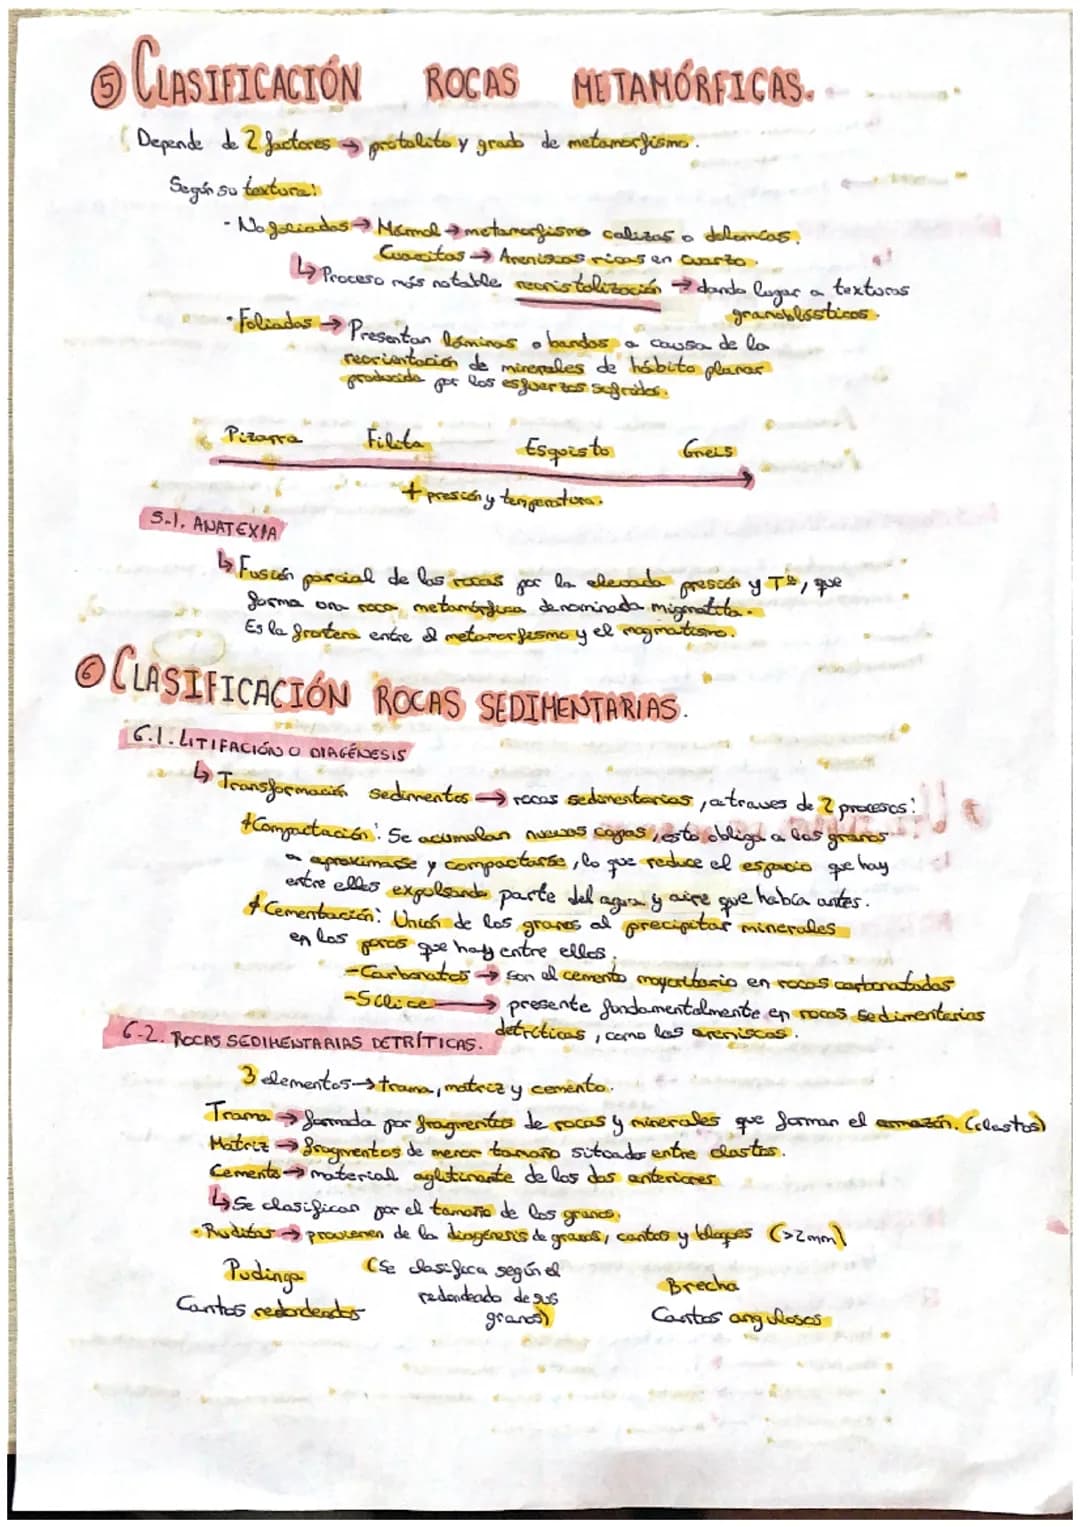 ⑤ CLASIFICACIÓN ROCAS METAMÓRFICAS.
Depende de 2 factores → protolito y grado de metamorfismo.
Según su textura:
- No foliadas → Mármol → metamorfismo calizas o dolomías.
Cuarcitas → Areniscas ricas en cuarzo.
↳ Proceso más notable recristalización → dando lugar a texturas
granoblásticas.
· Foliadas → Presentan láminas o bandas a causa de la
reorientación de minerales de hábito planar
producida por los esfuerzos sufridos.
Pizarra Filita Esquisto Gneis
+ presión y temperatura.
5.1. ANATEXIA
↳ Fusión parcial de las rocas por la elevada presión y Tª, que
forma una roca metamórfica denominada migmatita.
Es la frontera entre el metamorfismo y el magmatismo.
⑥ CLASIFICACIÓN ROCAS SEDIMENTARIAS.
6.1. LITIFACIÓN O DIAGÉNESIS
↳ Transformación sedimentos → rocas sedimentarias, a traves de 2 procesos:
+ Compactación: Se acumulan nuevas capas, esto obliga a los granos
a aproximarse y compactarse, lo que reduce el espacio que hay
entre elles expulsando parte del agua y aire que había antes.
+ Cementación: Unión de los granos al precipitar minerales
en los poros que hay entre ellos.
- Carbonatos → son el cemento mayoritario en rocas carbonatadas
- Sílice → presente fundamentalmente en rocas sedimentarias
detríticas, como las areniscas.
6.2. ROCAS SEDIMENTARIAS DETRÍTICAS.
3 elementos → trama, matriz y cemento.
Trama → formada por fragmentos de rocas y minerales que forman el armazón. (clastos)
Matriz → fragmentos de menor tamaño situados entre clastos.
Cemento → material aglutinante de los dos anteriores
↳ Se clasifican por el tamaño de los granos.
· Ruditas → provienen de la diagénesis de gravas, cantos y bloques (>2mm)
Pudinga (Se clasifica según el Brecha
Cantos redondeados redondeado de sus Cantos angulosos
granos)